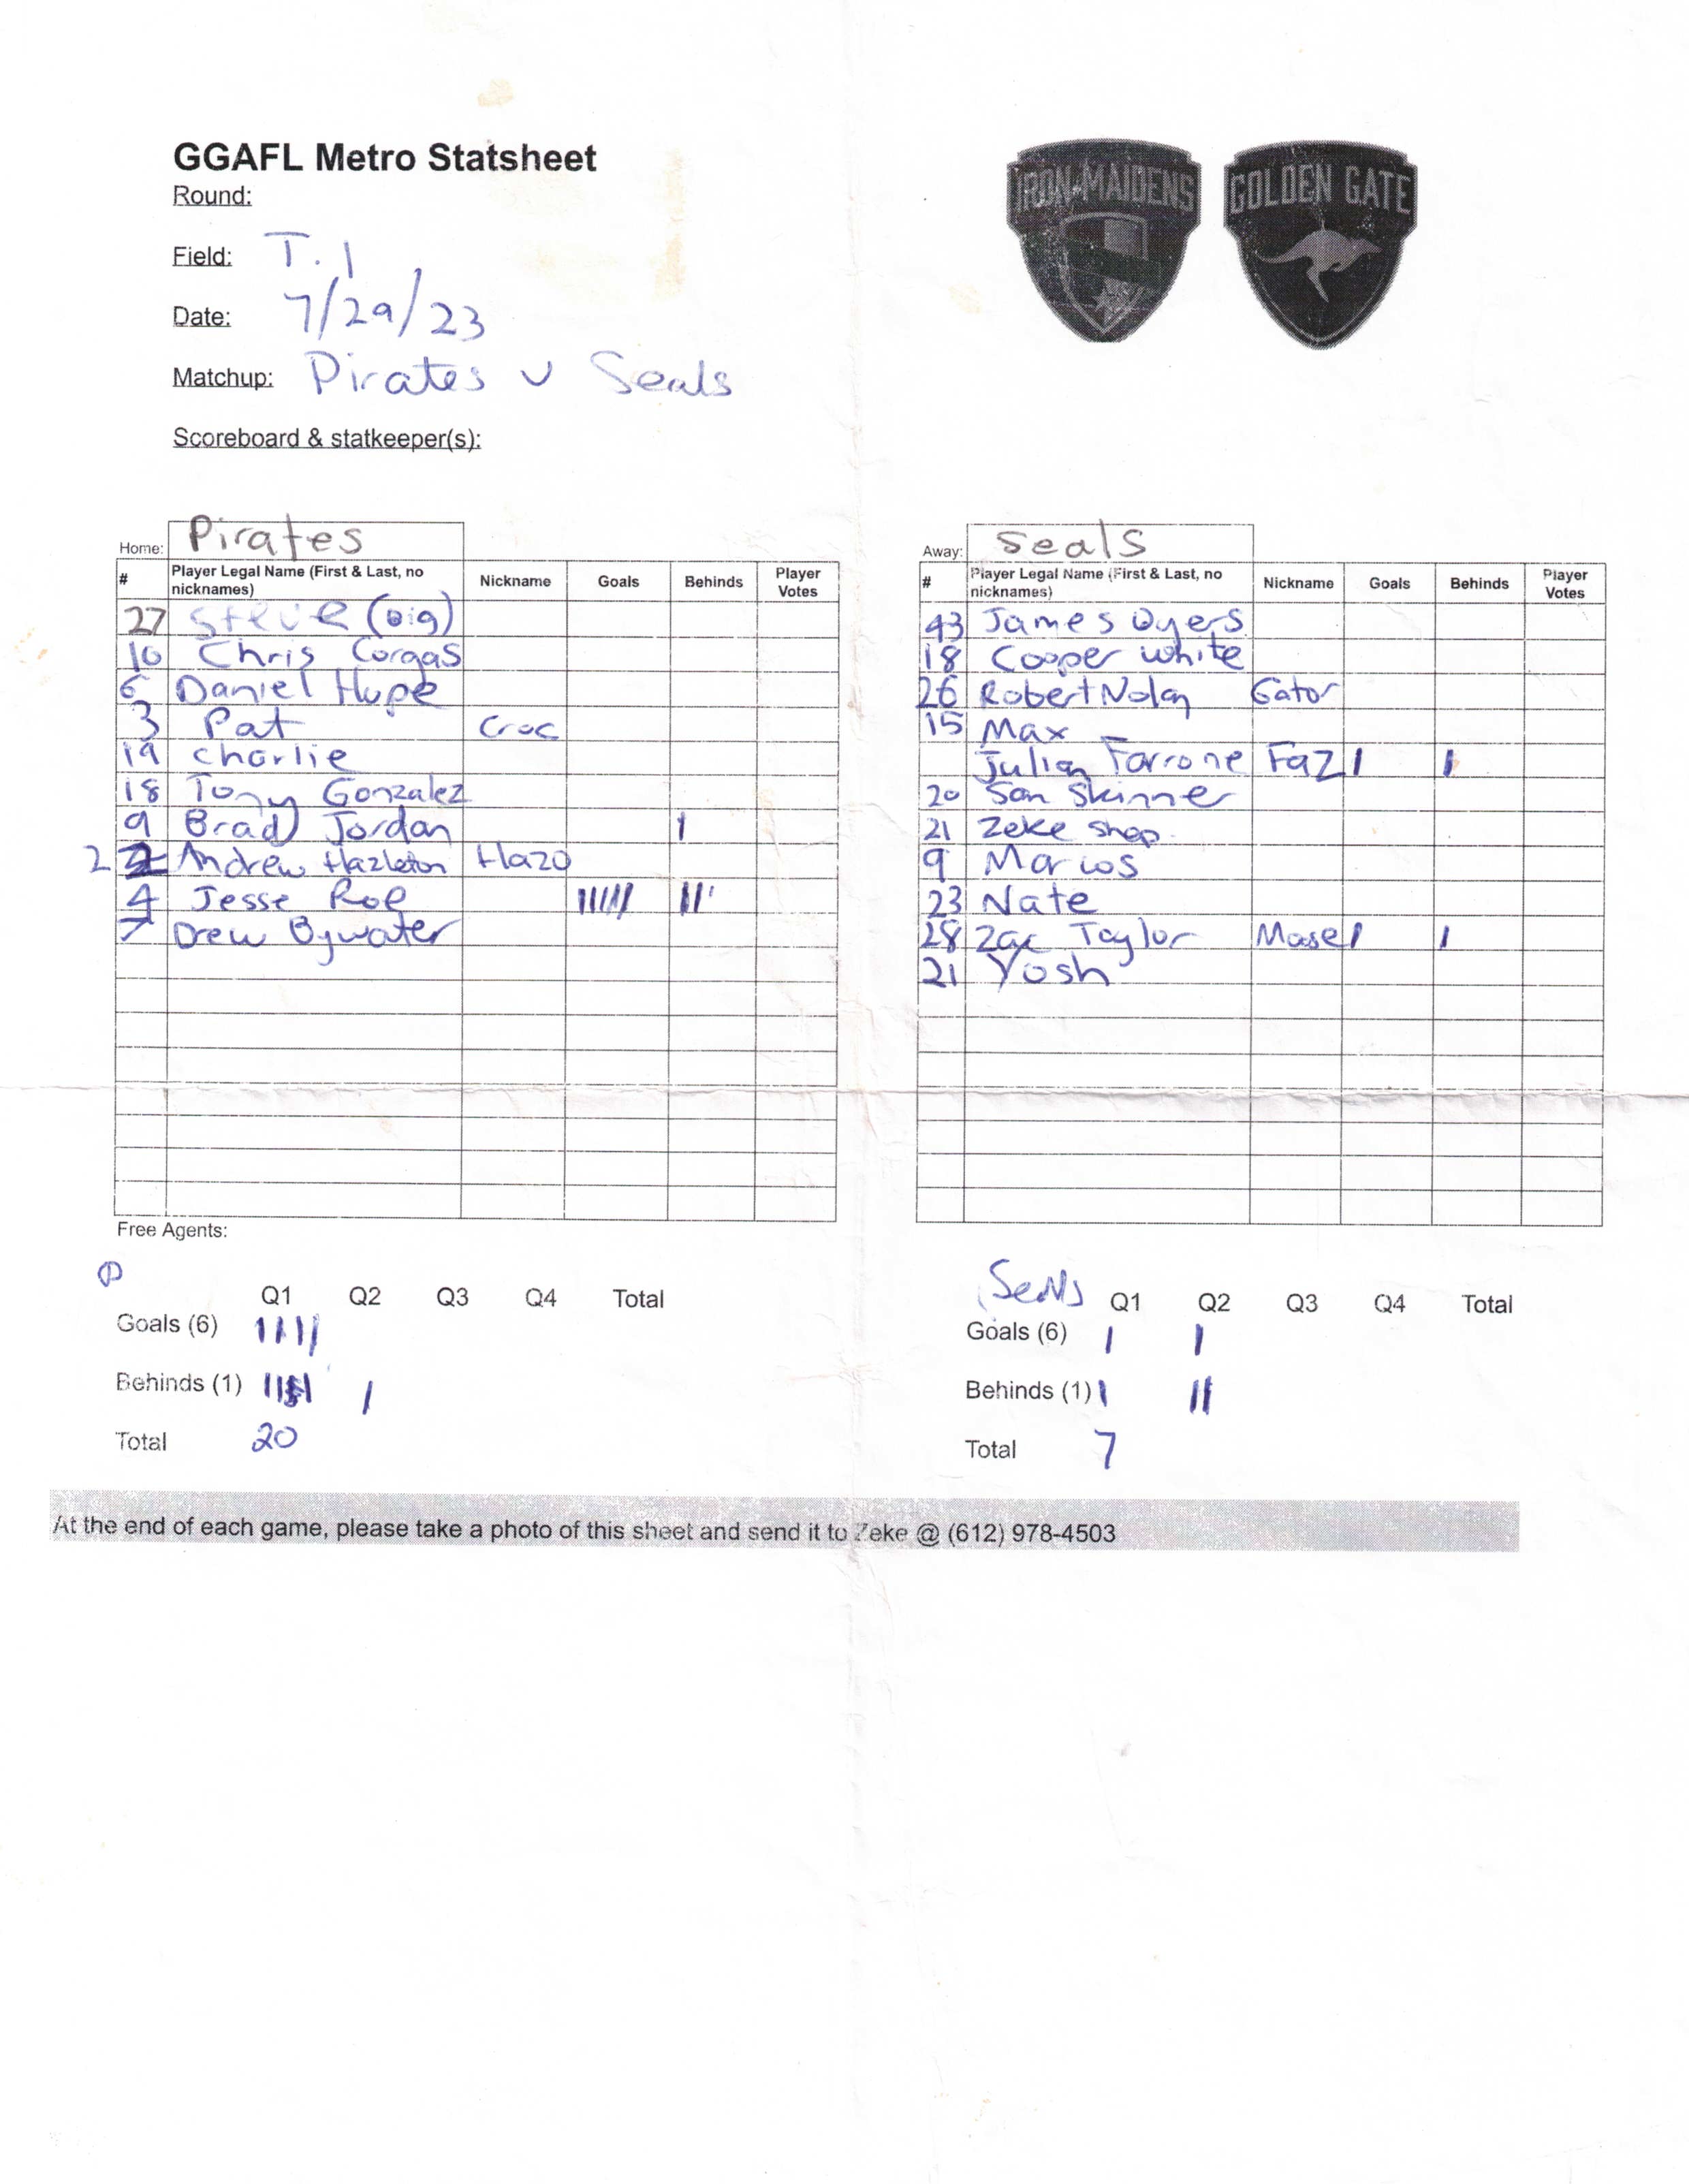 GGAFL Metro Statsheet
IRON MAIDENS
GOLDEN GATE
Round:
Field: T. 1
Date: 7/29/23
Matchup: Pirates v Seals
Scoreboard & statkeeper(s):
Home: Pirates
# Player Legal Name (First & Last, no nicknames) Nickname Goals Behinds Player Votes
27 Steve (Big)
10 Chris Corgas
6 Daniel Hupe
3 Pat Croc
19 Charlie
18 Tony Gonzalez
9 Brad Jordan |
2 Andrew Hazleton Hazo
4 Jesse Roe |||||| |||
7 Drew Bywater
Free Agents:
Away: Seals
# Player Legal Name (First & Last, no nicknames) Nickname Goals Behinds Player Votes
43 James Dyers
18 Cooper White
26 Robert Nolan Gator
15 Max
Julian Farrone Faz | |
20 San Skinner
21 Zeke Shop
9 Marcos
23 Nate
28 Zac Taylor Mase | |
21 Yosh
P
Q1 Q2 Q3 Q4 Total
Goals (6) ||||
Behinds (1) |
Total 20
Seals
Q1 Q2 Q3 Q4 Total
Goals (6) | |
Behinds (1) | ||
Total 7
At the end of each game, please take a photo of this sheet and send it to Zeke @ (612) 978-4503